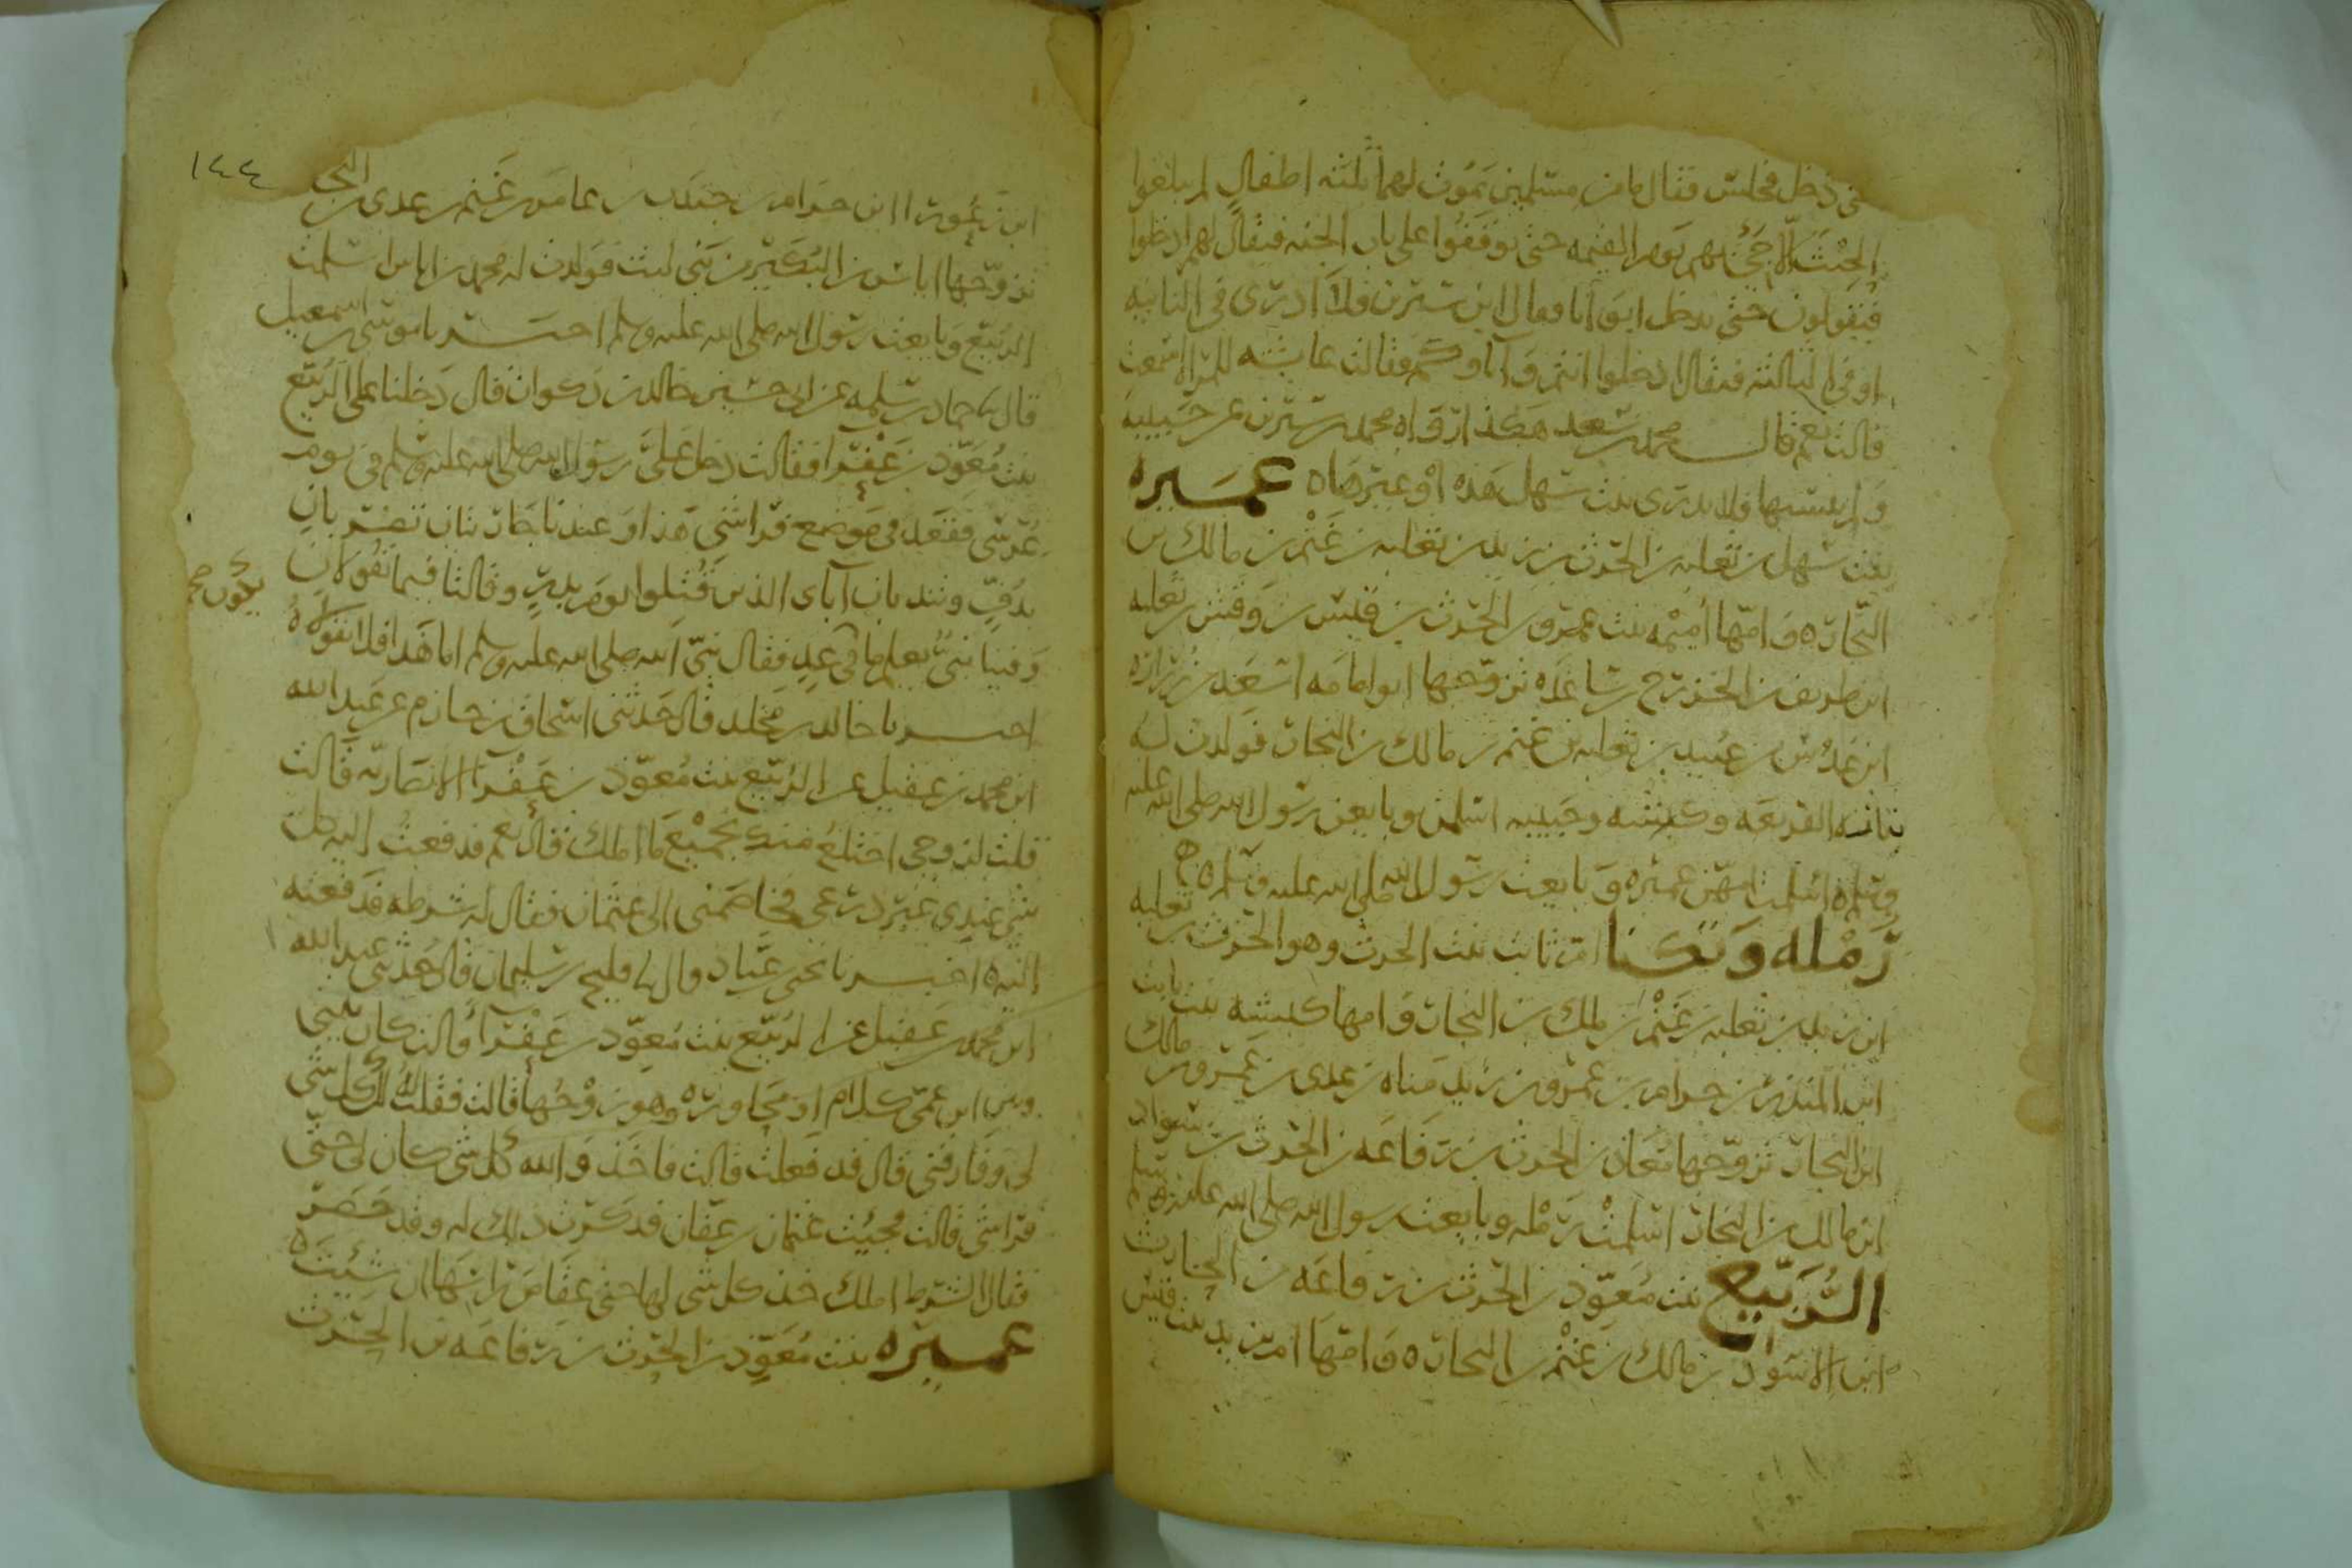 دخل فجلس فقال ما من مسلمين يموت لهما ثلثه اطفال لم يبلغوا
الحنث الا جئ بهم يوم القيمه حتى يوقفوا على باب الجنه فيقال لهم ادخلوا
فيقولون حتى يدخل ابوانا وقال ابن سيرين فلا ادرى فى الثانيه
او فى الثالثه فيقال ادخلوا انتم واباوكم فقالت عايشه للمراه اسمعت
قالت نعم قال محمد بن سعد هكذا رواه محمد بن سيرين عن حبيبه
ولم ينسبها فلا يدرى بنت سهل هذه او غيرها ه عميره
بنت سهل بن ثعلبه بن الحرث بن زيد بن ثعلبه بن غنم بن مالك بن
النجار ه وامها اميمه بنت عمرو بن الحرث بن قيس بن وقش بن ثعلبه
ابن طريف بن الخزرج بن ساعده تزوجها ابو امامه اسعد بن زراره
ابن عدس بن عبيد بن ثعلبه بن غنم بن مالك بن النجار فولدت له
بناته الفريعه وكبشه وحبيبه اسلمن وبايعن رسول الله صلى الله عليه
وسلم ه اسلمت امهن عميره وبايعت رسول الله صلى الله عليه وسلم ه
رمله وتكنا ام ثابت بنت الحرث وهو الحرث بن ثعلبه
ابن زيد بن ثعلبه بن غنم بن ملك بن النجار وامها كبشه بنت ثابت
ابن المنذر بن حرام بن عمرو بن زيد مناه بن عدى بن عمرو بن مالك
ابن النجار تزوجها معاذ بن الحرث بن رفاعه بن الحرث بن سواد
ابن مالك بن النجار اسلمت رمله وبايعت رسول الله صلى الله عليه وسلم
الربيع بنت معوذ بن الحرث بن رفاعه بن الحارث
ابن الاسود بن مالك بن غنم بن النجار ه وامها ام يزيد بنت قيس
١٤٤
ابن زعورا ابن حرام بن جندب بن عامر بن غنم بن عدى بن النجار
تزوجها اياس بن البكير من بنى ليث فولدت له محمد بن اياس اسلمت
الربيع وبايعت رسول الله صلى الله عليه وسلم اخبرنا موسى بن اسمعيل
قال نا حماد بن سلمه عن ابى حسين خالد بن ذكوان قال دخلنا على الربيع
بنت معوذ بن عفرا فقالت دخل على رسول الله صلى الله عليه وسلم فى يوم
عرسى فقعد فى موضع فراشى هذا وعندنا جاريتان تضربان
بدف وتندبان آباى الذين قتلوا يوم بدر وقالتا فيما تقولان
وفينا نبى يعلم ما فى غد فقال نبى الله صلى الله عليه وسلم اما هذا فلا تقولاه
اخبرنا خالد بن مخلد قال حدثنى اسحاق بن حازم عن عبد الله
ابن محمد بن عقيل عن الربيع بنت معوذ بن عفرا الانصاريه قالت
قلت لزوجى اختلع منك بجميع ما املك قال نعم فدفعت اليه كل
شى عندى غير درعى فخاصمنى الى عثمان فقال له شرطه فدفعته
اليه ه اخبرنا يحيى بن عباد قال نا فليح بن سليمان قال حدثنى عبد الله
ابن محمد بن عقيل عن الربيع بنت معوذ بن عفرا قالت كان بينى
وبين ابن عمى كلام وهو زوجها قالت فقلت له لك كل شى
لى وفارقنى قال قد فعلت قالت فاخذ والله كل شى كان لى حتى
فراشى قالت فجيت عثمان بن عفان فذكرت ذلك له وقد حصر
فقال الشرط املك خذ كل شى لها حتى عقاص راسها ان شيت ه
عميره بنت معوذ بن الحرث بن رفاعه بن الحرث